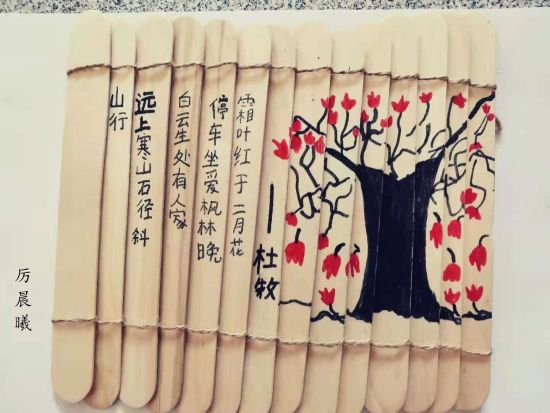 山行
远上寒山石径斜
白云生处有人家
停车坐爱枫林晚
霜叶红于二月花
——杜牧
厉晨曦